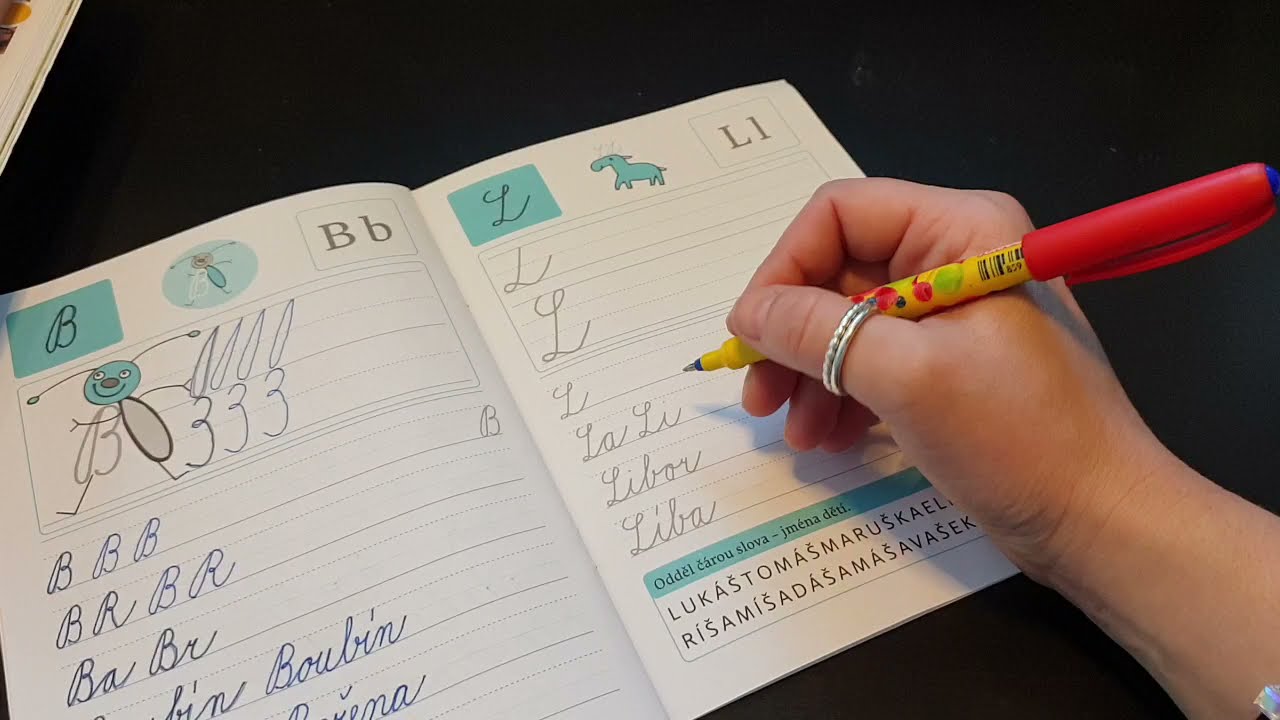 B b
B
3 3 3
B
B
B B B
B R B R
Ba Br
Boubín
L l
L
L
L
L
La Li
Libor
Líba
Odděl čárou slova – jména dětí.
LUKÁŠTOMÁŠMARUŠKAEL
RÍŠAMÍŠADÁŠAMÁŠAVAŠEK
659